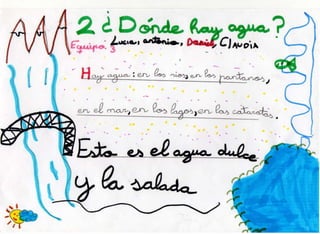 2 ¿Dónde hay agua?
Equipo 3 Lucia, antonio, Daniel, CLAUDIA
Hay agua: en los rios, en los pantanos,
en el mar, en los lagos, en las cataratas.
Esta es el agua dulce
y la salada